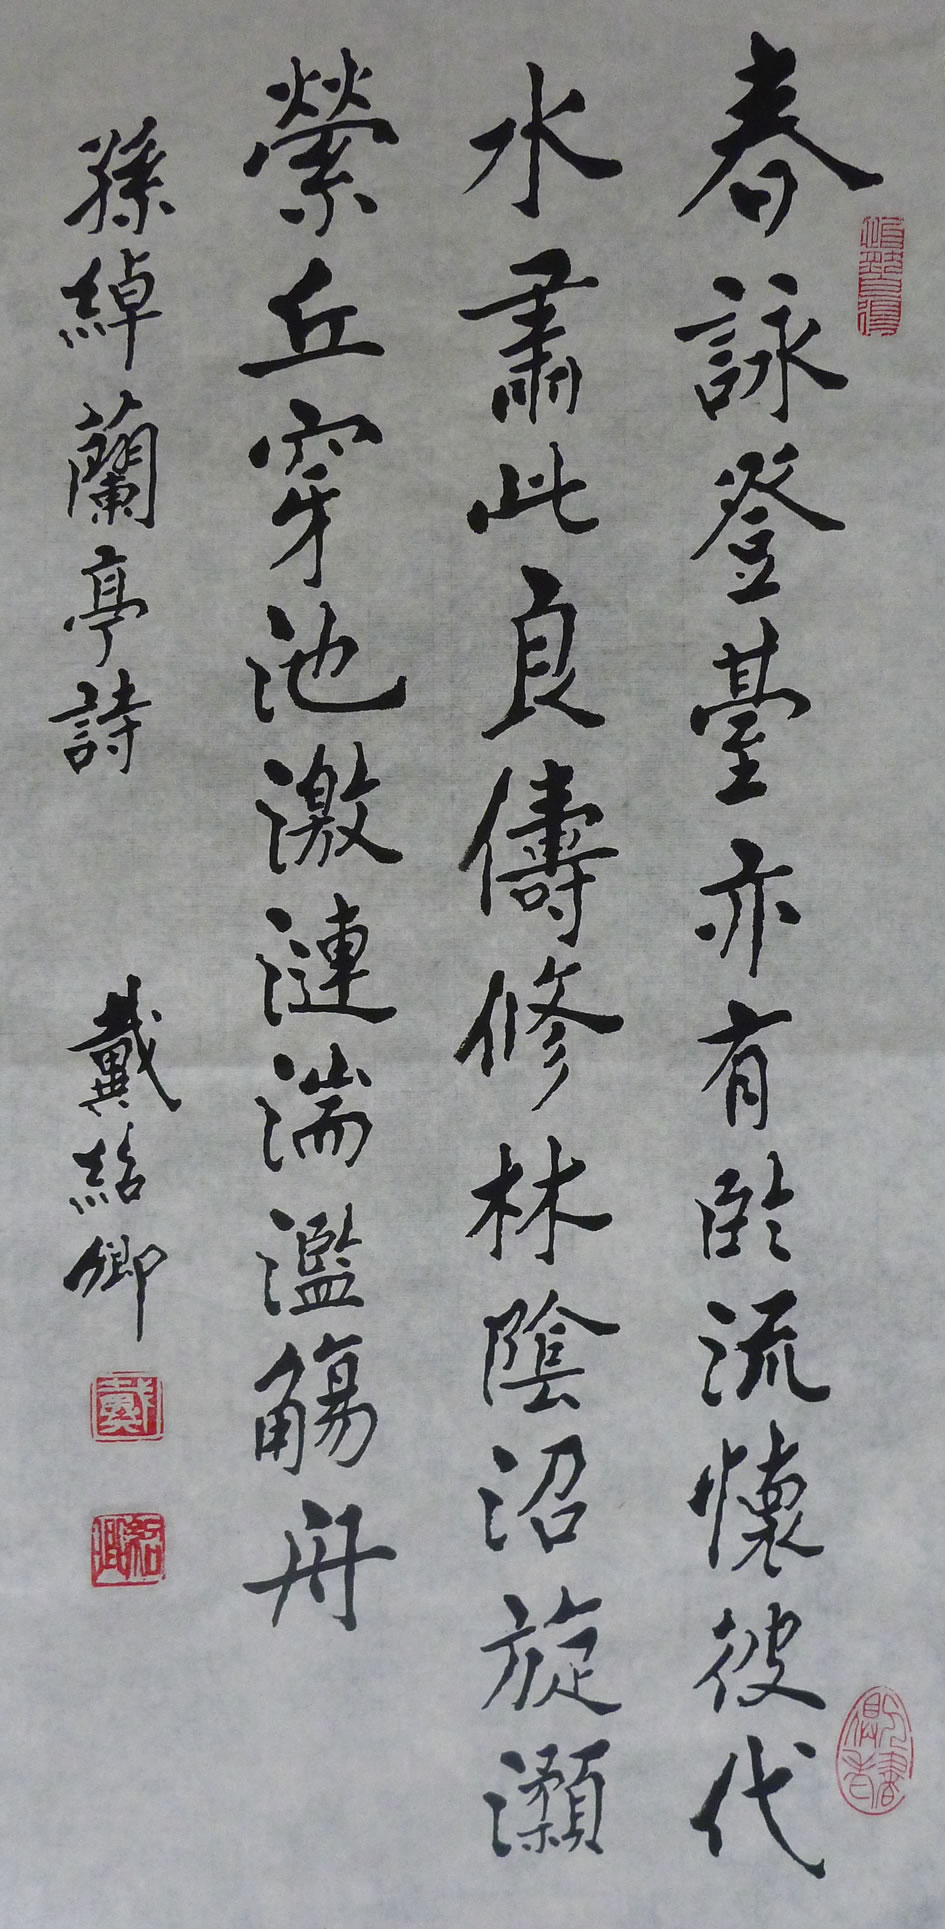 春詠登臺亦有臨流懷彼代
水肅此良儔修林陰沼旋瀨
縈丘穿池激漣湍濫觴舟
孫綽蘭亭詩 戴紹卿
戴